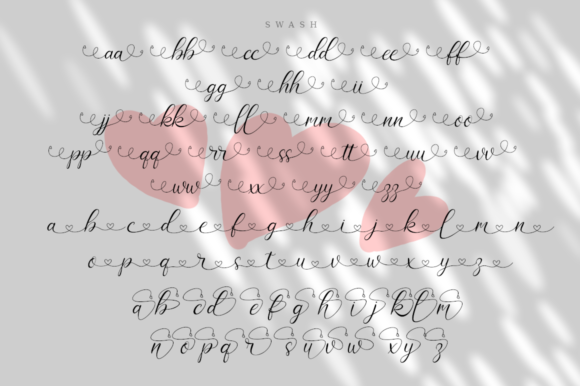 SWASH
aa bb cc dd ee ff
gg hh ii
jj kk ll mm nn oo
pp qq rr ss tt uu vv
ww xx yy zz
a b c d e f g h i j k l m n
o p q r s t u v w x y z
a b c d e f g h i j k l m
n o p q r s t u v w x y z